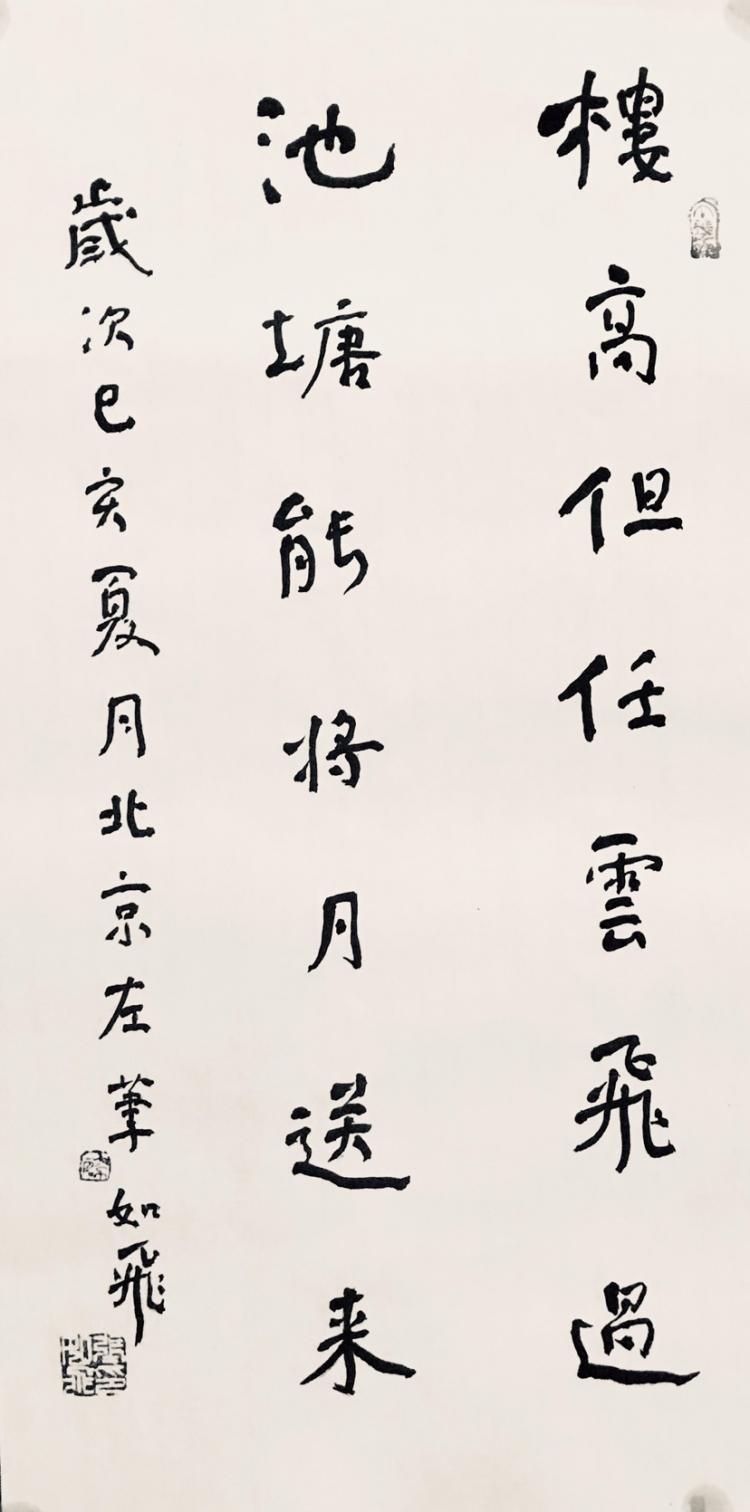 樓高但任雲飛過
池塘能将月送来
歲次已亥夏月北京左筆如飛